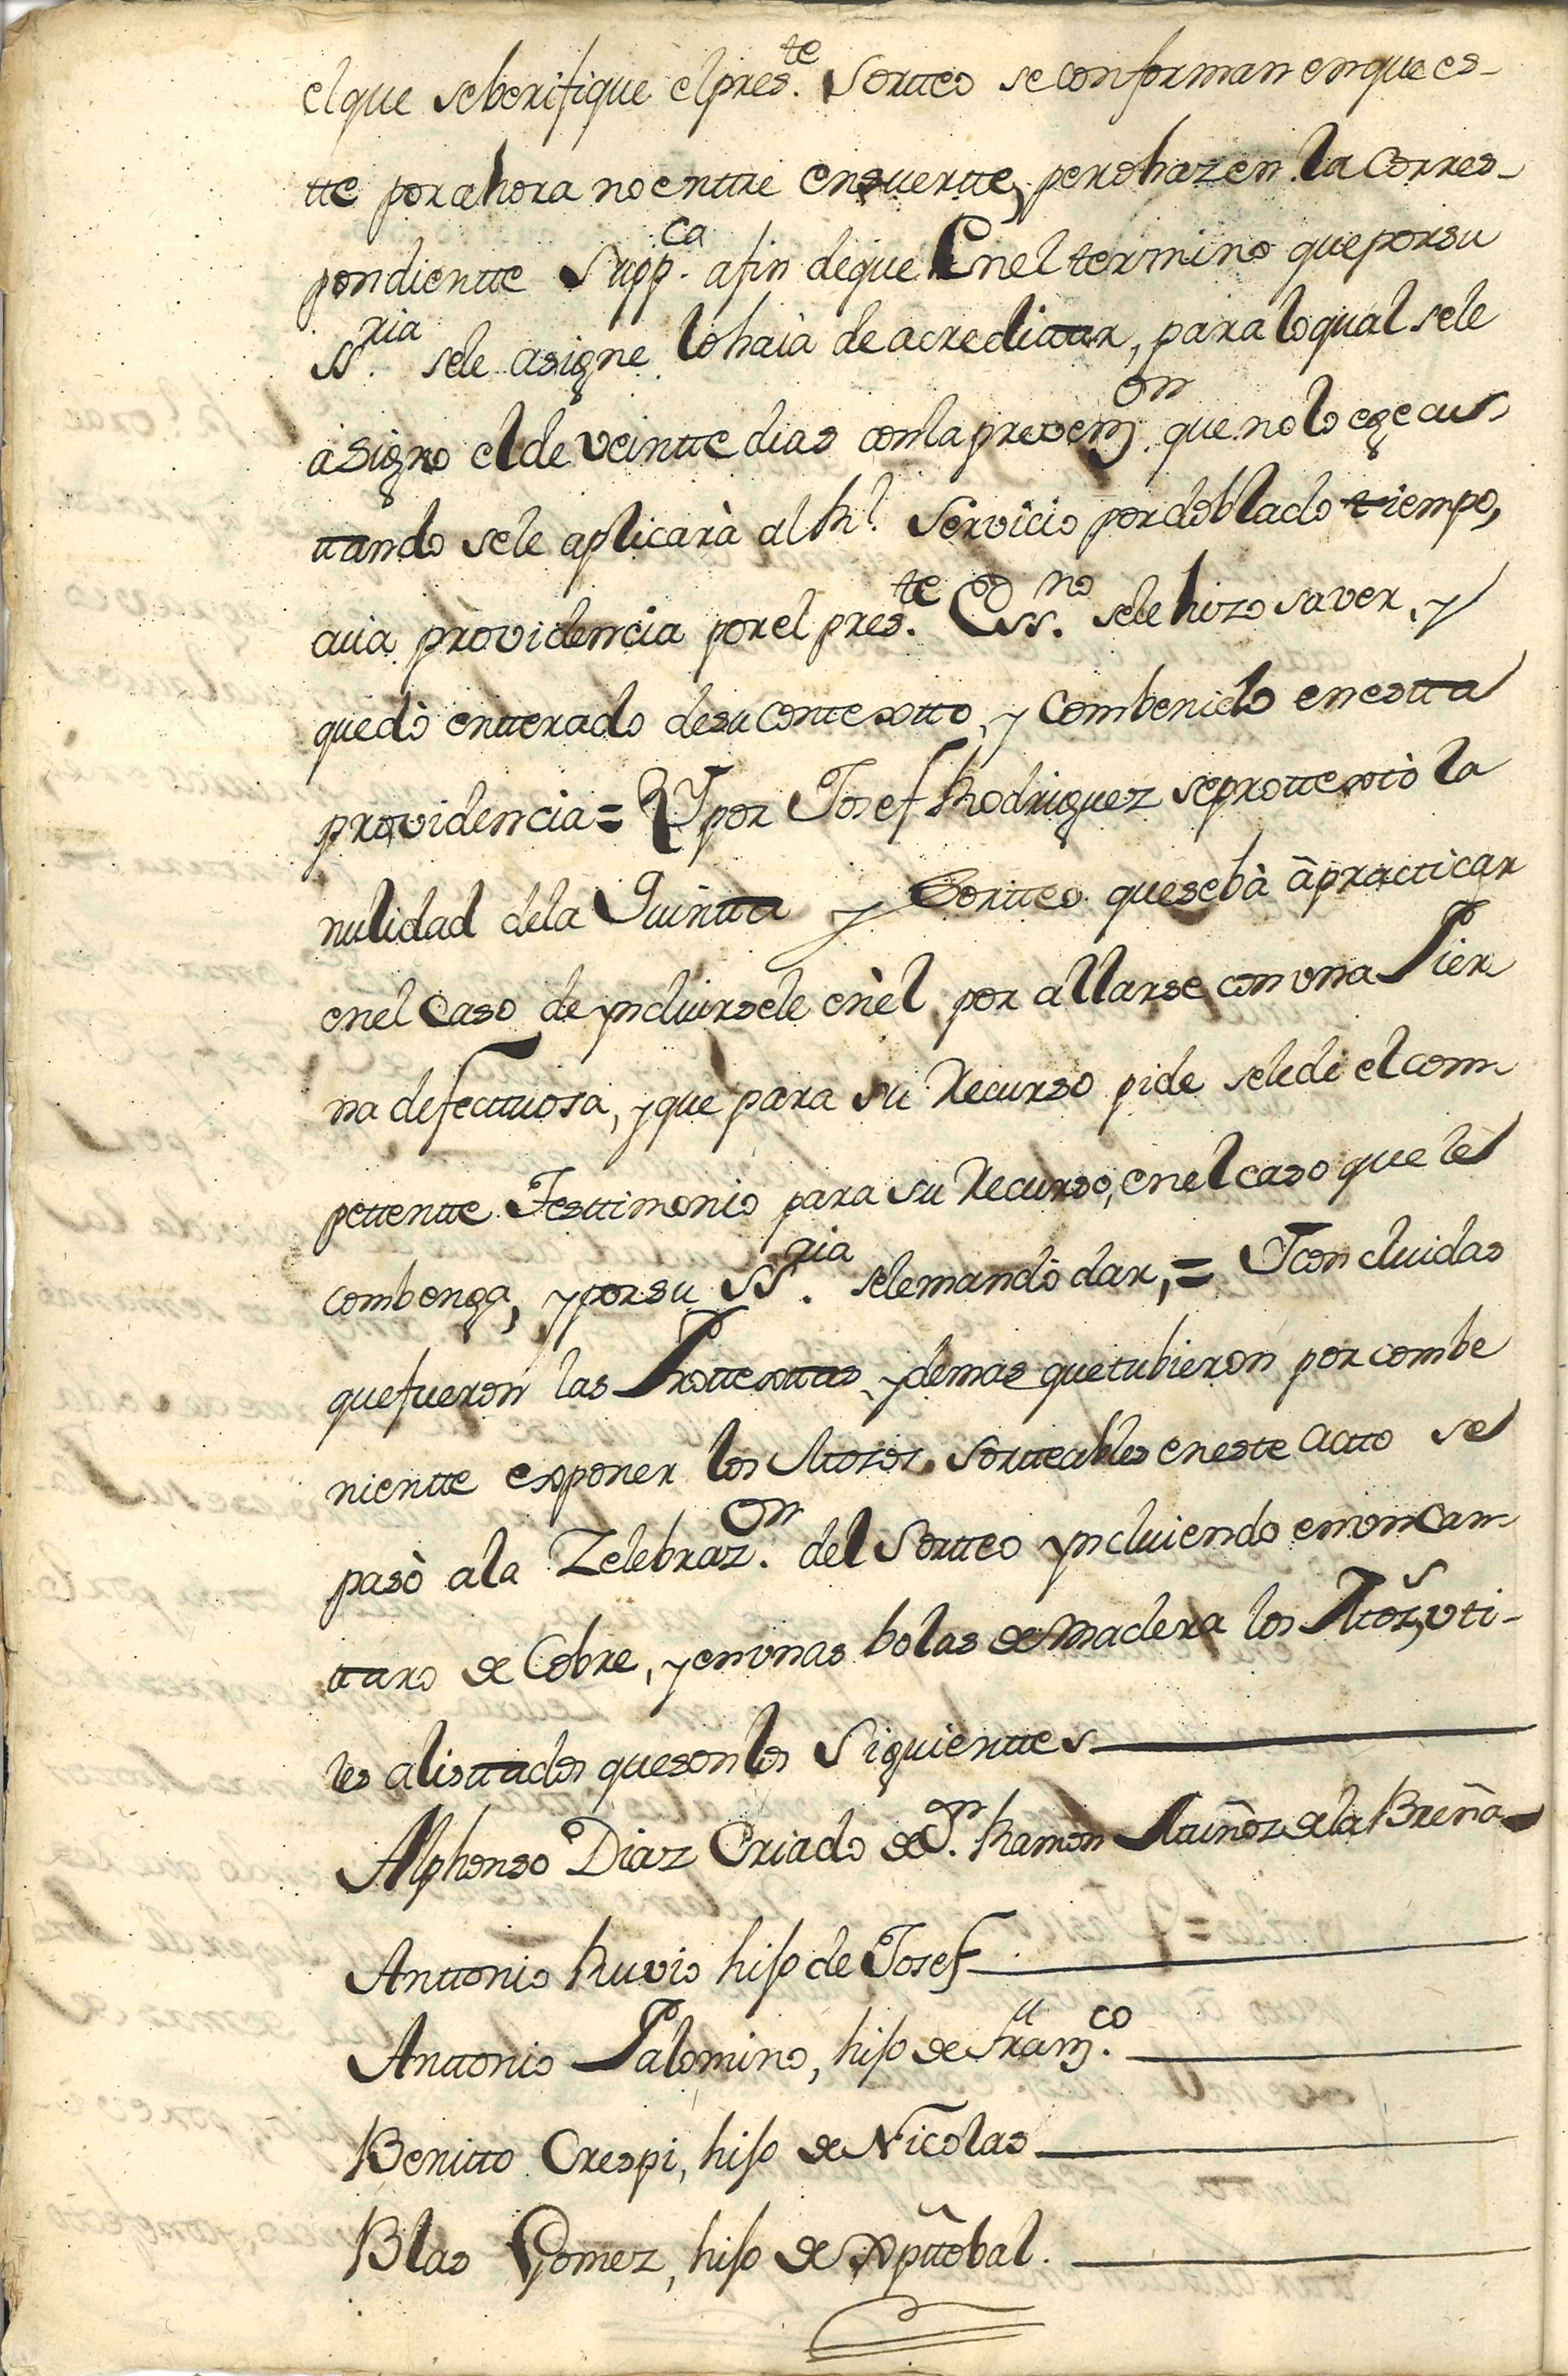 el que se berifique el pres.te Sortteo se conforman en que es-
tte por ahora no enttre en suertte, pero hazen la Corres-
pondientte Supp.ca a fin de que En el termino que por su
SS.ria se le asigne lo haia de acredittar, para lo qual se le
asigno el de veintte dias con la prevenz.on que no lo egecu-
ttando se le aplicarà al Rl. Servicio por doblado tiempo,
cuia providencia por el pres.te Essno. se le hizo saver, y
quedò entterado de su conttextto, y combenido en estta
providencia = Y por Josef Rodriguez se prottextò la
nulidad de la Quintta y Sortteo que se bà à practicar
en el Caso de yncluirsele en èl por allarse con una Pier
na defecttuosa, y que para su Recurso pide se le dè el com-
pettentte Testtimonio para su Recurso, en el caso que le
combenga, y por su SS.ria se le mandò dar, = Y concluidas
que fueron las Prottexttas, y demas que tubieron por combe
nientte exponer los Mozos Sortteables en este Actto se
pasò a la Zelebraz.on del Sortteo yncluiendo en un can-
ttaro de Cobre, y en unas bolas de Madera los Mozs. uti-
les alisttados que son los Siguienttes
Alphonso Diaz Criado de Dn. Ramon Muñoz de la Breña
Anttonio Ruvio hijo de Josef
Anttonio Palomino, hijo de Franz.co
Benitto Crespi, hijo de Nicolas
Blas Gomez, hijo de Xpttobal.